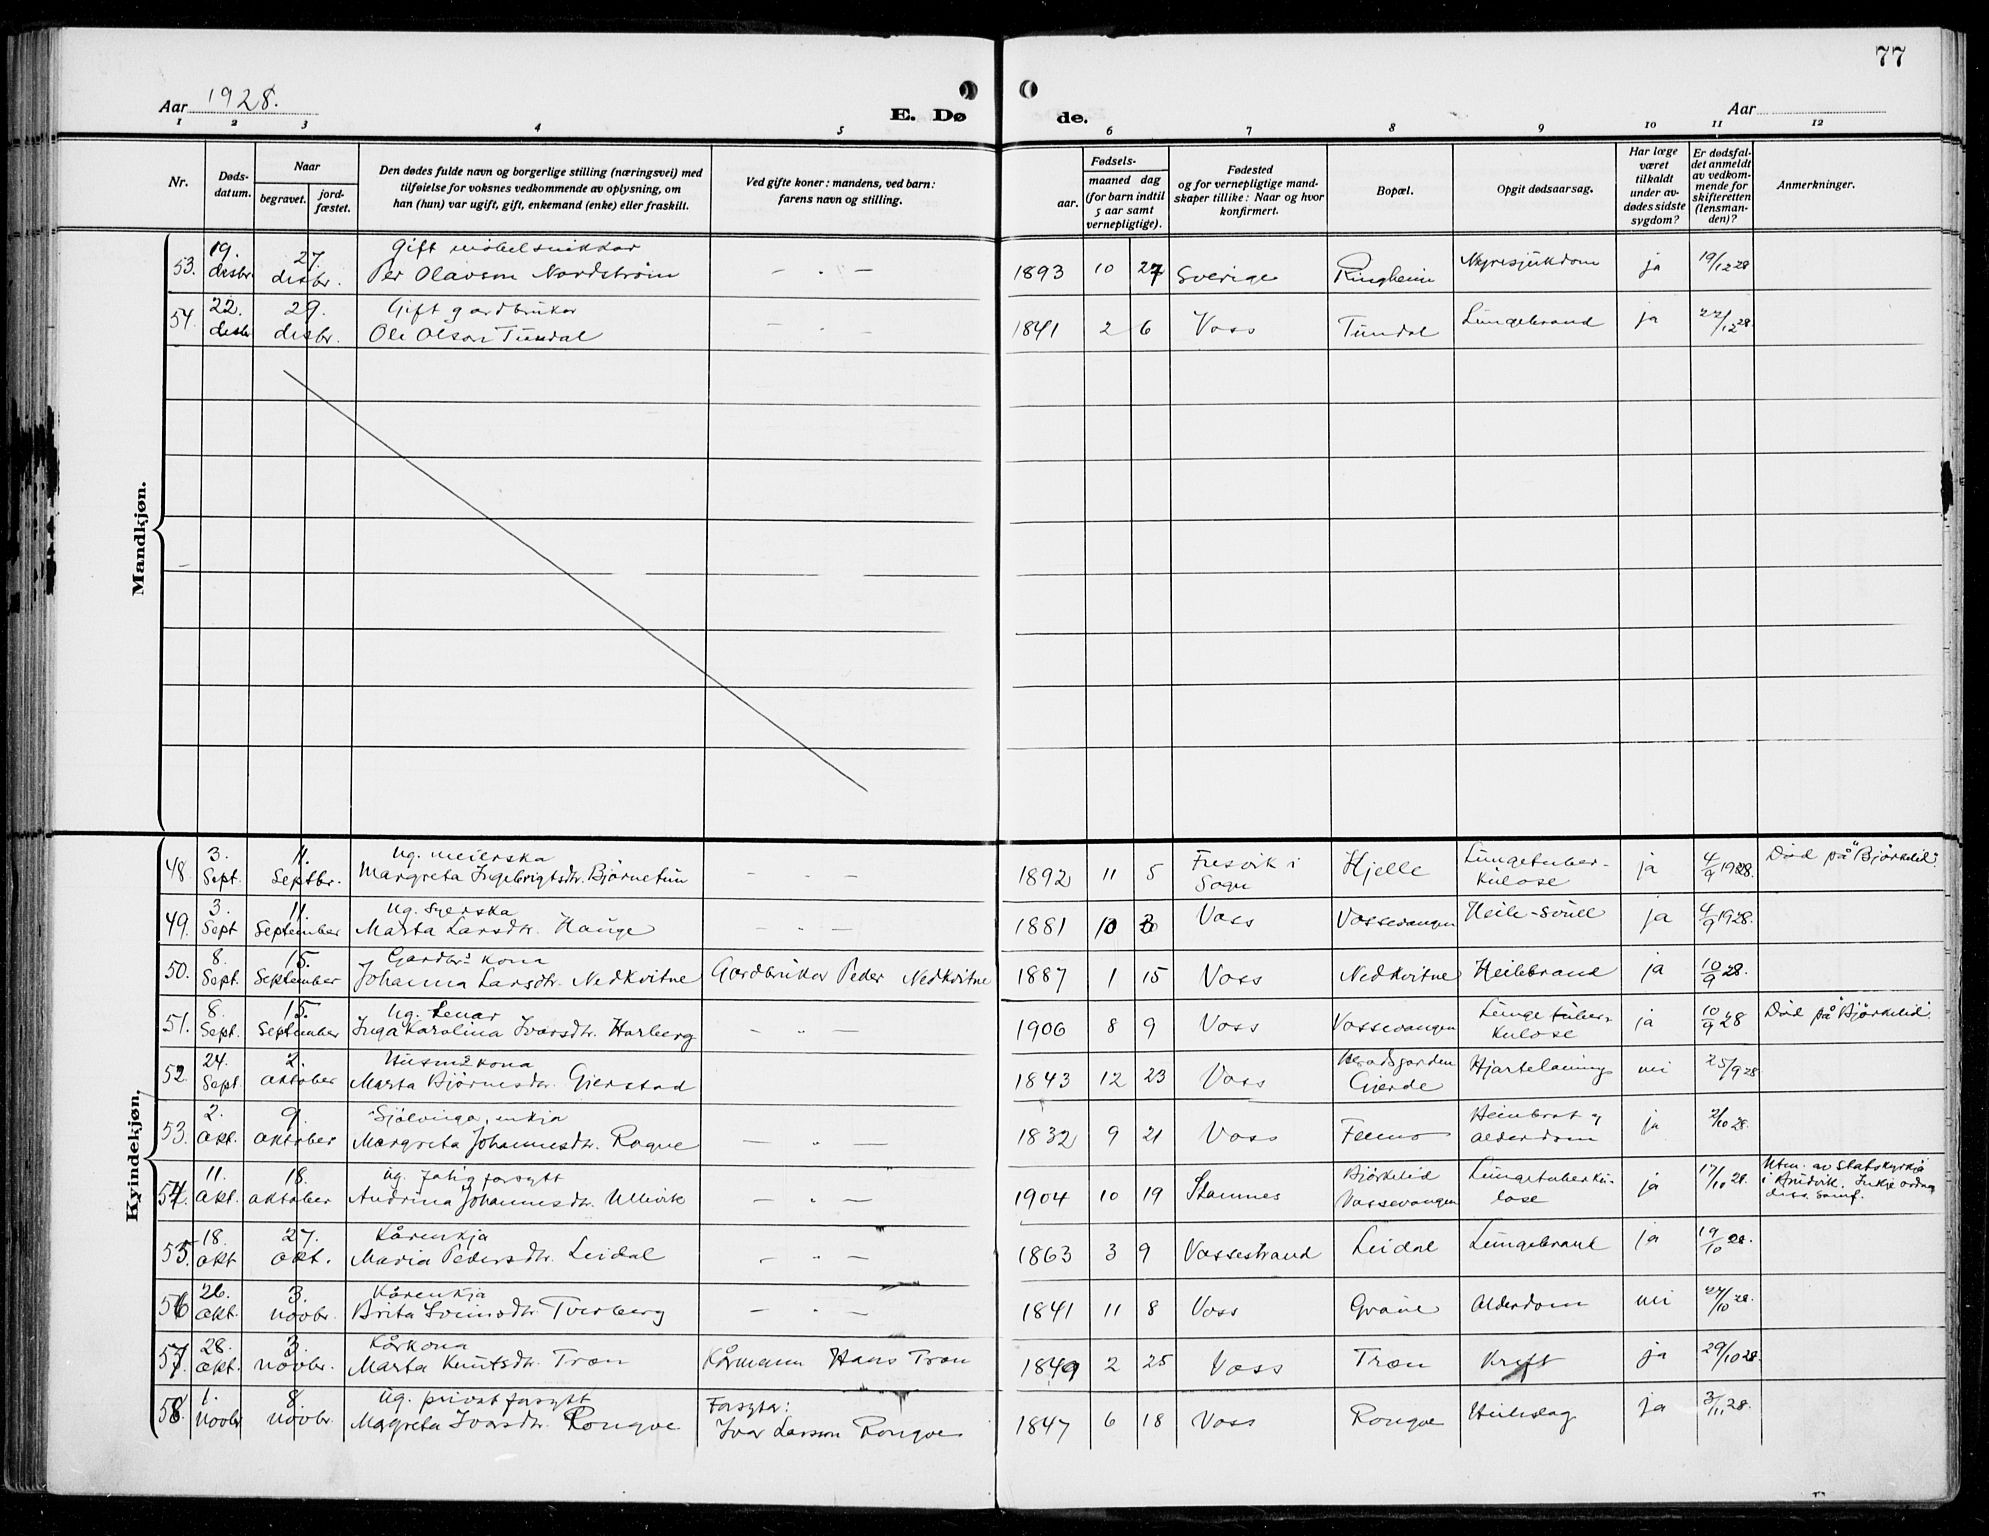 77
Aar 1928.
E. Dø de.
Aar
1 2 3 4 5 6 7 8 9 10 11 12
Nr.
Døds-
datum.
Naar
begravet.
jord-
fæstet.
Den dødes fulde navn og borgerlige stilling (næringsvei) med
tilføielse for voksnes vedkommende av oplysning, om
han (hun) var ugift, gift, enkemand (enke) eller fraskilt.
Ved gifte koner: mandens, ved barn:
farens navn og stilling.
Fødsels-
aar.
maaned dag
(for barn indtil
5 aar samt
vernepligtige).
Fødested
og for vernepligtige mand-
skaper tillike: Naar og hvor
konfirmert.
Bopæl.
Opgit dødsaarsag.
Har læge
været
tilkaldt
under av-
dødes sidste
sygdom?
Er dødsfal-
det anmeldt
av vedkom-
mende for
skifteretten
(lensman-
den)?
Anmerkninger.
Mandkjøn.
53. 19. desbr. 27. desbr. Gift møbelsnikkar
Per Olavson Nordstrøm — „ — 1893 10 27 Sverige Ringheim Nyresjukdom ja 19/12 28
54. 22. desbr 29. desbr. Gift gardbrukar
Ole Olson Tundal — „ — 1841 2 6 Voss Tundal Lungebrand ja 22/12 28.
Kvindekjøn.
48. 3. Sept. 11. Septbr. Ug. meierska
Margreta Ingebrigtsdtr. Bjørnetun — „ — 1892 11 5 Fresvik i
Sogn Hjelle Lungetuber-
kulose ja 4/9 1928. Död på "Björkelid".
49. 3. Sept 11. September Ug. syerska
Marta Larsdtr. Hauge — „ — 1881 10 Voss Vossevangen Heile-svull ja 4/9 1928.
50. 8. Sept. 15. September Gardbr. kona
Johanna Larsdtr. Nedkvitne Gardbrukar Peder Nedkvitne 1887 1 15 Voss Nedkvitne Heilebrand ja 10/9 28.
51. 8. Sept. 15. September Ug. tenar
Inga Karolina Ivarsdtr. Horberg — „ — 1906 8 9 Voss Vossevangen Lungetuber-
kulose ja 10/9 28 Död på "Björkelid".
52. 24. Sept. 2. oktober Husm. kona
Marta Bjørnesdtr. Gjerstad 1843 12 23 Voss Heradsgarden
Gjerde Hjartelaming nei 25/9 28
53. 2. okt. 9. oktober Sjølvinga, enkja
Margreta Johannesdtr. Rogne — „ — 1832 9 21 Voss Heinbrot og
alderdom ja 2/10 28.
54. 11. okt. 18. oktober Ug. fatigforsytt
Andrina Johannesdtr. Ullvik — „ — 1904 10 19 Stamnes Björkelid
Vossevangen Lungetuberku-
lose ja 17/10 28. Utm. av statskyrkja
i Arndvik. Inkje ordna
diss. samf.
55. 18. okt 27. okt. Kårenkja
Maria Pedersdtr. Leidal — „ — 1863 3 9 Vossestrand Leidal Lungebrand ja 19/10 28.
56 26. okt. 3. novbr. Kårenkja
Brita Sveinsdtr. Tverberg — „ — 1841 11 8 Voss Grane Alderdom nei 27/10 28.
57. 28. okt. 3. novbr. Kårkona
Marta Knutsdtr. Træn Kårmann Hans Træn 1849 2 25 Voss Træn Kreft ja 29/10 28.
58. 1. novbr 8. novbr. Ug. privat forsytt
Margreta Ivarsdtr. Rongve Forsytar:
Ivar Larsson Rongve 1847 6 18 Voss Rongve Heileslag ja 3/11 28.